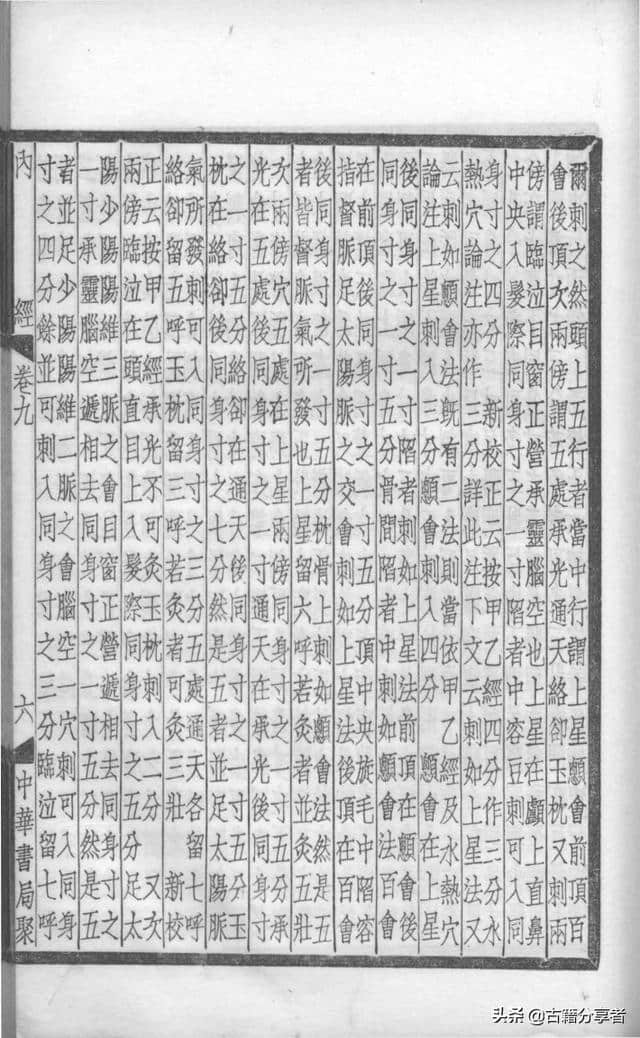 爾刺之然頭上五行者當中行謂上星顖會前頂百
會後頂次兩傍謂五處承光通天絡卻玉枕又刺兩
傍謂臨泣目窗正營承靈腦空也上星在顱上直鼻
中央入髮際同身寸之一寸陷者中容豆刺可入同
身寸之四分 新校正云按甲乙經四分作三分水
熱穴論注亦作三分詳此注下文云刺如上星法又
云刺如顖會法既有二法則當依甲乙經及水熱穴
論注上星刺入三分顖會刺入四分 顖會在上星
後同身寸之一寸陷者刺如上星法前頂在顖會後
同身寸之一寸五分骨間陷者中刺如顖會法百會
在前頂後同身寸之一寸五分頂中央旋毛中陷容
指督脈足太陽脈之交會刺如上星法後頂在百會
後同身寸之一寸五分枕骨上刺如顖會法然是五
者皆督脈氣所發也上星留六呼若灸者並灸五壯
次兩傍穴五處在上星兩傍同身寸之一寸五分承
光在五處後同身寸之一寸通天在承光後同身寸
之一寸五分絡卻在通天後同身寸之一寸五分玉
枕在絡卻後同身寸之七分然是五者並足太陽脈
氣所發刺可入同身寸之三分五處通天各留七呼
絡卻留五呼玉枕留三呼若灸者可灸三壯 新校
正云按甲乙經承光不可灸玉枕刺入二分 又次
兩傍臨泣在頭直目上入髮際同身寸之五分足太
陽少陽陽維三脈之會目窗正營遞相去同身寸之
一寸承靈腦空遞相去同身寸之一寸五分然是五
者並足少陽陽維二脈之會腦空一穴刺可入同身
寸之四分餘並可刺入同身寸之三分臨泣留七呼
內 經 卷九 六 中華書局聚
头条 @古籍分享者